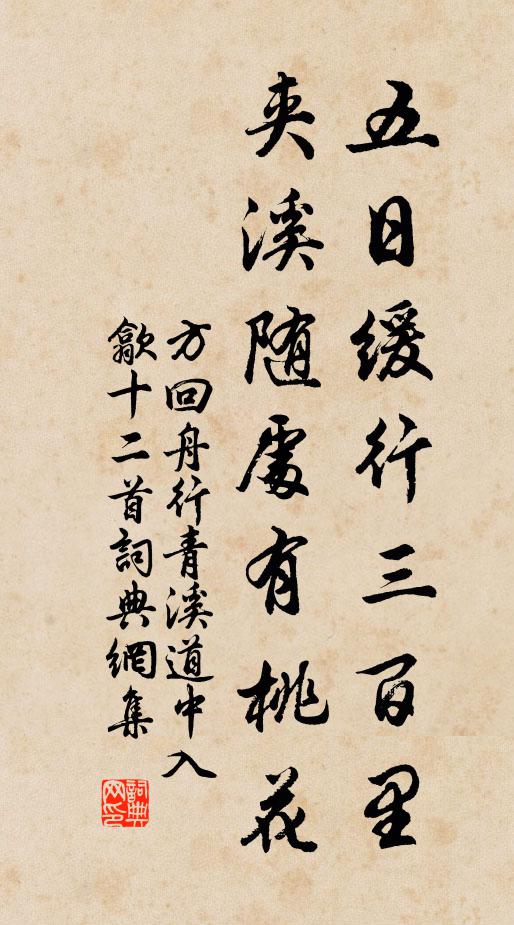 五日緩行三百里
夾溪随處有桃花
方回舟行青溪道中入
歙十二首詞典網集
詞典
网印